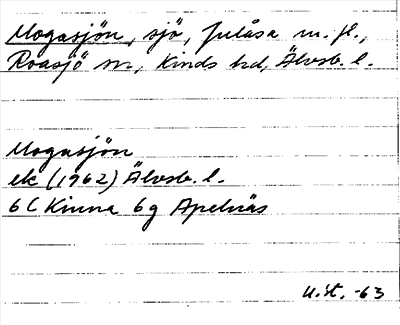 Mogasjön, sjö, Julåsa m. fl.,
Roasjö sn, Kinds hd, Älvsb. l.
Mogasjön
ek (1962) Älvsb. l.
6 C Kinna 6g Apelnäs
U.St. -63